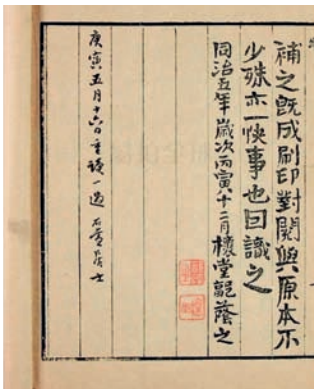 補之既成刷印對閱與原本不
少殊亦一快事也因識之
同治五年歲次丙寅十二月 櫰堂 蔭之
庚寅五月十六日重讀一過